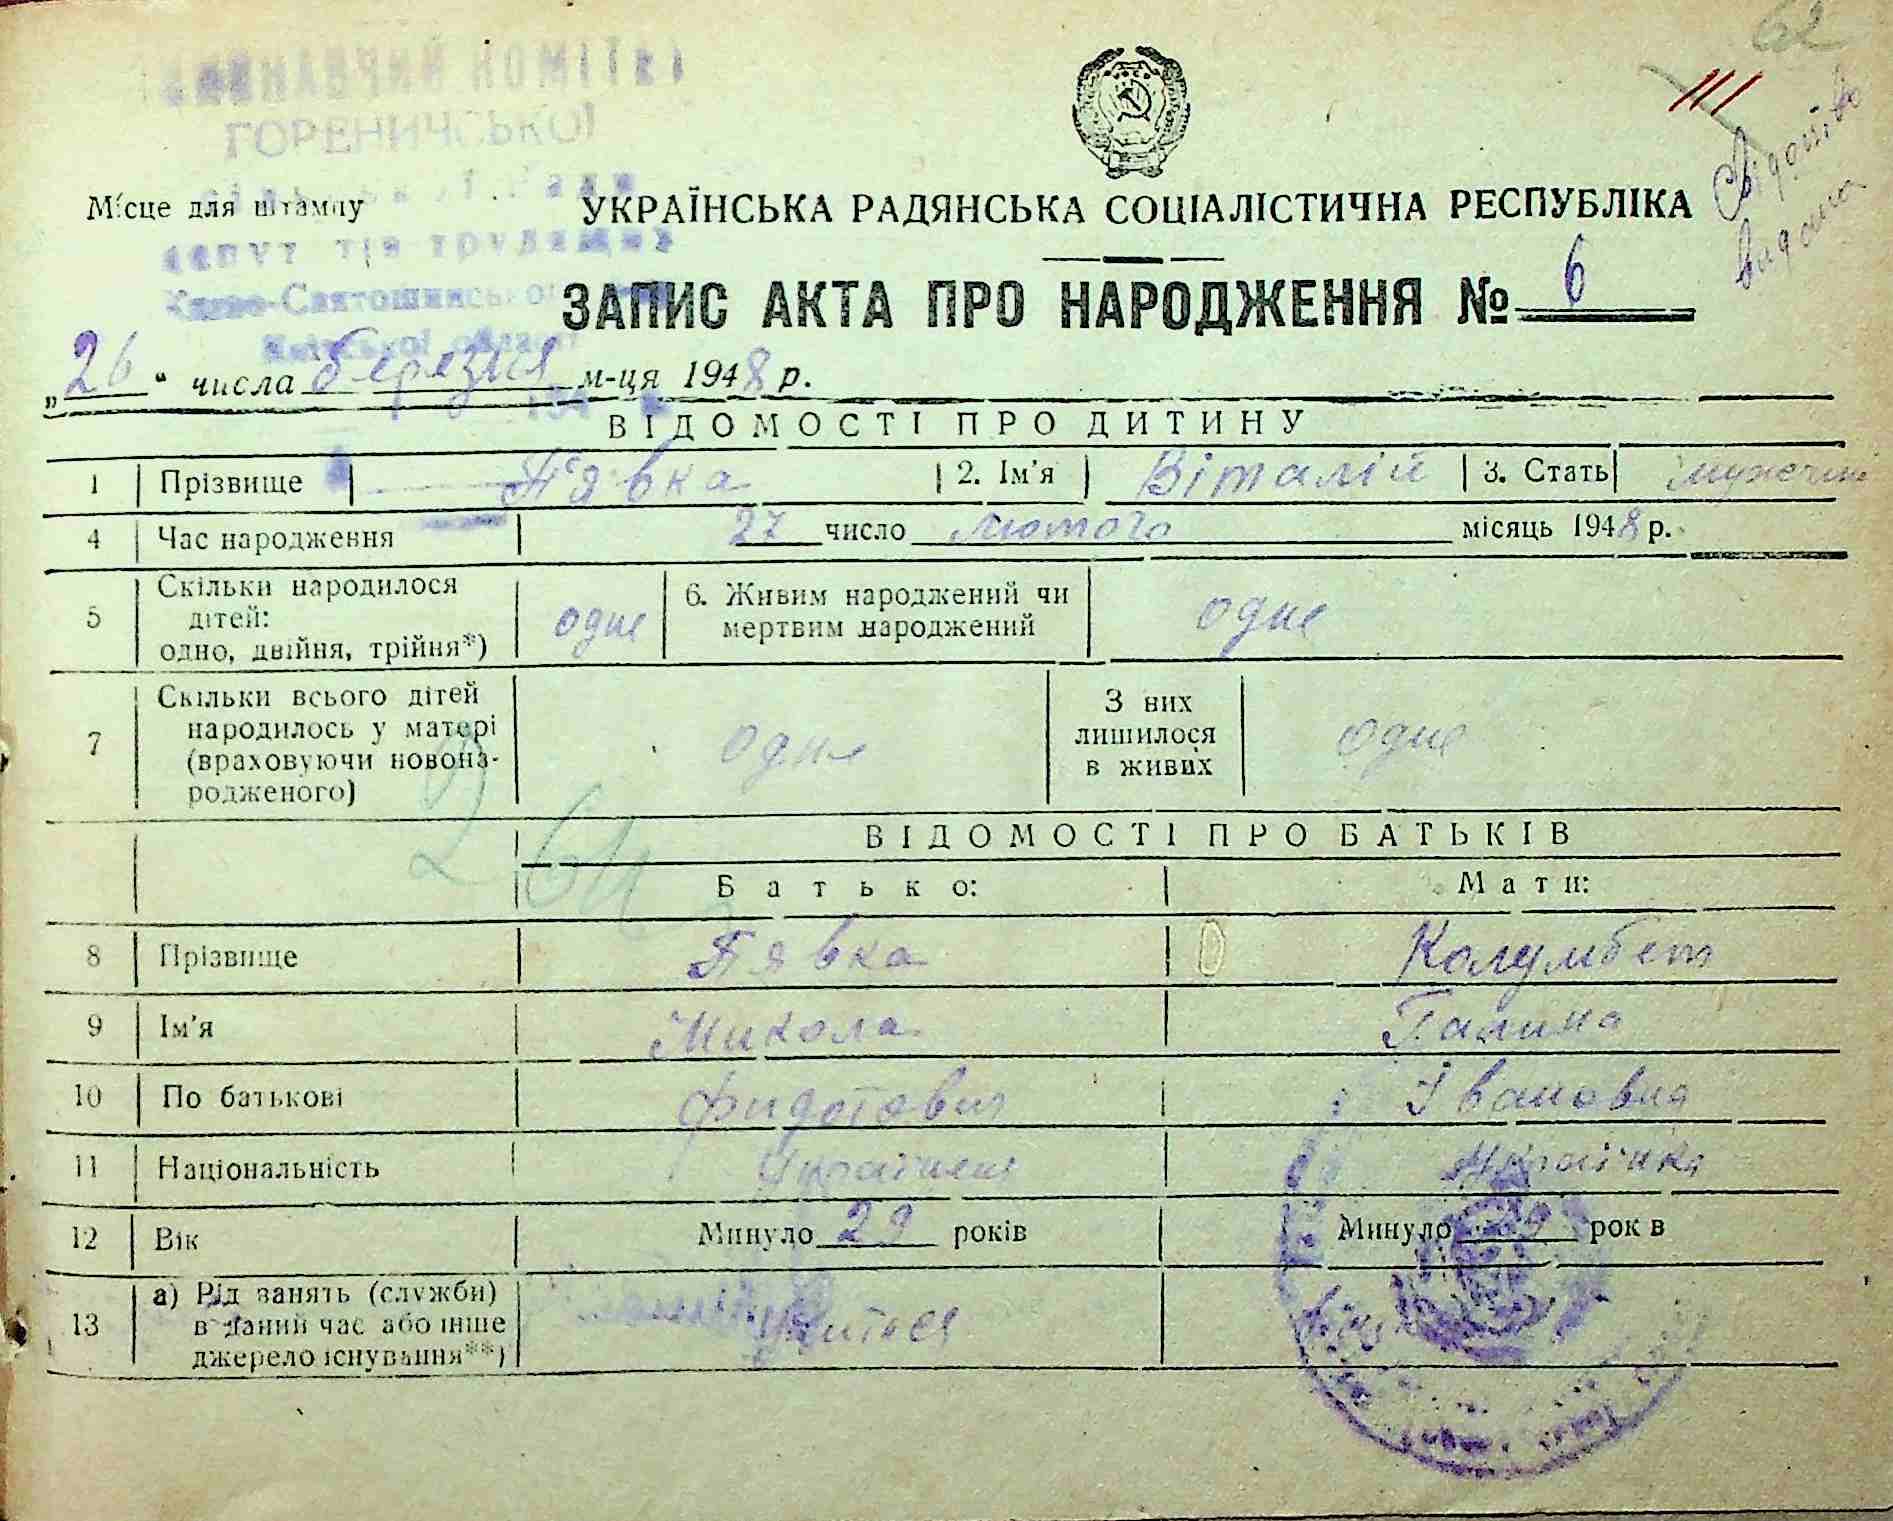 62
111
Свідоцтво
видано
ВИКОНАВЧИЙ КОМІТЕТ
ГОРЕНИЧСЬКОЇ
сільської Ради
депутатів трудящих
Києво-Святошинського
Київської області
Місце для штампу
УКРАЇНСЬКА РАДЯНСЬКА СОЦІАЛІСТИЧНА РЕСПУБЛІКА
ЗАПИС АКТА ПРО НАРОДЖЕННЯ № 6
„26“ числа березня м-ця 1948 р.
ВІДОМОСТІ ПРО ДИТИНУ
1 Прізвище П'явка 2. Ім'я Віталій 3. Стать
4 Час народження 27 число лютого місяць 1948 р.
5 Скільки народилося дітей: одно, двійня, трійня*) одне 6. Живим народжений чи мертвим народжений одне
7 Скільки всього дітей народилось у матері (враховуючи новонародженого) одне З них лишилося в живих одне
264
ВІДОМОСТІ ПРО БАТЬКІВ
Батько: Мати:
8 Прізвище Пявка Колумбет
9 Ім'я Микола Галина
10 По батькові Фидотович Івановна
11 Національність Українець Українка
12 Вік Минуло 29 років Минуло років
13 а) Рід занять (служби) в даний час або інше джерело існування**)